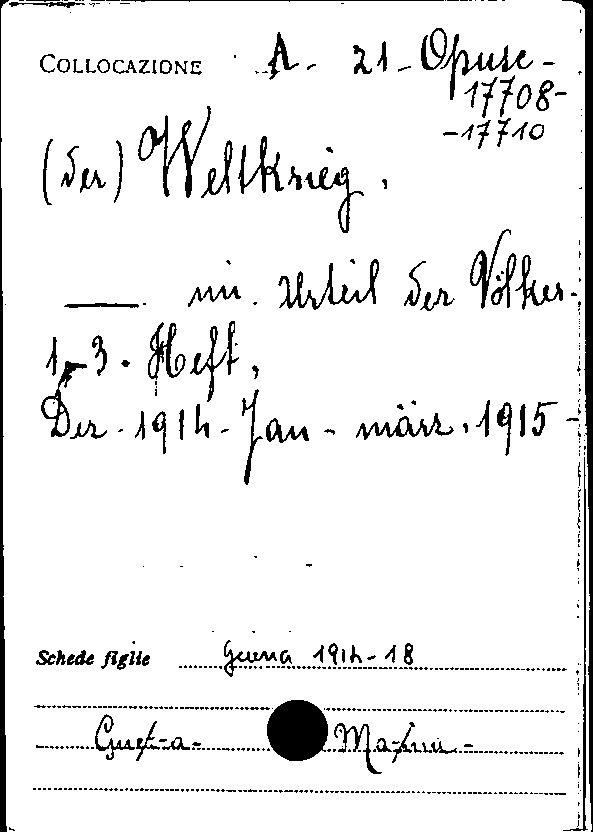 COLLOCAZIONE A - 21 - Opusc -
17708 -
- 17710
(der) Weltkrieg.
im Urteil der Völker.
1-3. Heft,
Dez. 1914 - Jan - märz. 1915 -
Schede figlie Guerra 1914-18